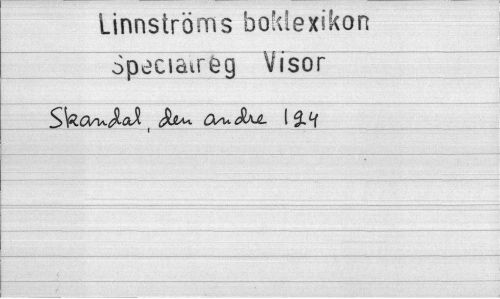 Linnströms boklexikon
Specialreg Visor
Skandal, den andre 124